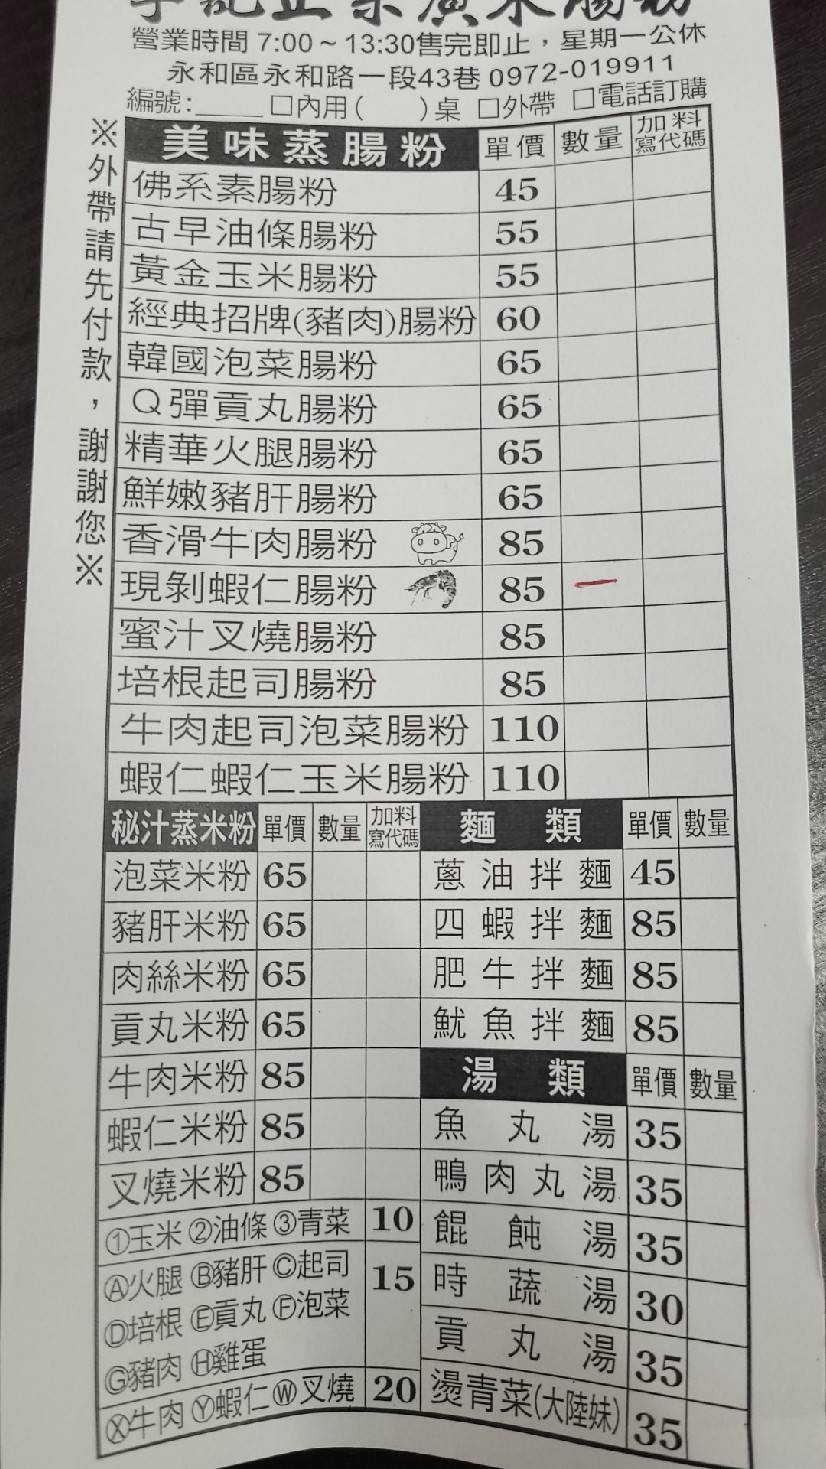 營業時間 7:00~13:30售完即止，星期一公休
永和區永和路一段43巷 0972-019911
編號:_____ □內用(　　)桌 □外帶 □電話訂購
※外帶請先付款，謝謝您※
美味蒸腸粉 單價 數量 加料寫代碼
佛系素腸粉 45
古早油條腸粉 55
黃金玉米腸粉 55
經典招牌(豬肉)腸粉 60
韓國泡菜腸粉 65
Q彈貢丸腸粉 65
精華火腿腸粉 65
鮮嫩豬肝腸粉 65
香滑牛肉腸粉 85
現剝蝦仁腸粉 85 一
蜜汁叉燒腸粉 85
培根起司腸粉 85
牛肉起司泡菜腸粉 110
蝦仁蝦仁玉米腸粉 110
秘汁蒸米粉 單價 數量 加料寫代碼
泡菜米粉 65
豬肝米粉 65
肉絲米粉 65
貢丸米粉 65
牛肉米粉 85
蝦仁米粉 85
叉燒米粉 85
①玉米 ②油條 ③青菜 10
Ⓐ火腿 Ⓑ豬肝 Ⓒ起司 15
Ⓓ培根 Ⓔ貢丸 Ⓕ泡菜
Ⓖ豬肉 Ⓗ雞蛋
Ⓧ牛肉 Ⓨ蝦仁 Ⓦ叉燒 20
麵類 單價 數量
蔥油拌麵 45
四蝦拌麵 85
肥牛拌麵 85
魷魚拌麵 85
湯類 單價 數量
魚丸湯 35
鴨肉丸湯 35
餛飩湯 35
時蔬湯 30
貢丸湯 35
燙青菜(大陸妹) 35